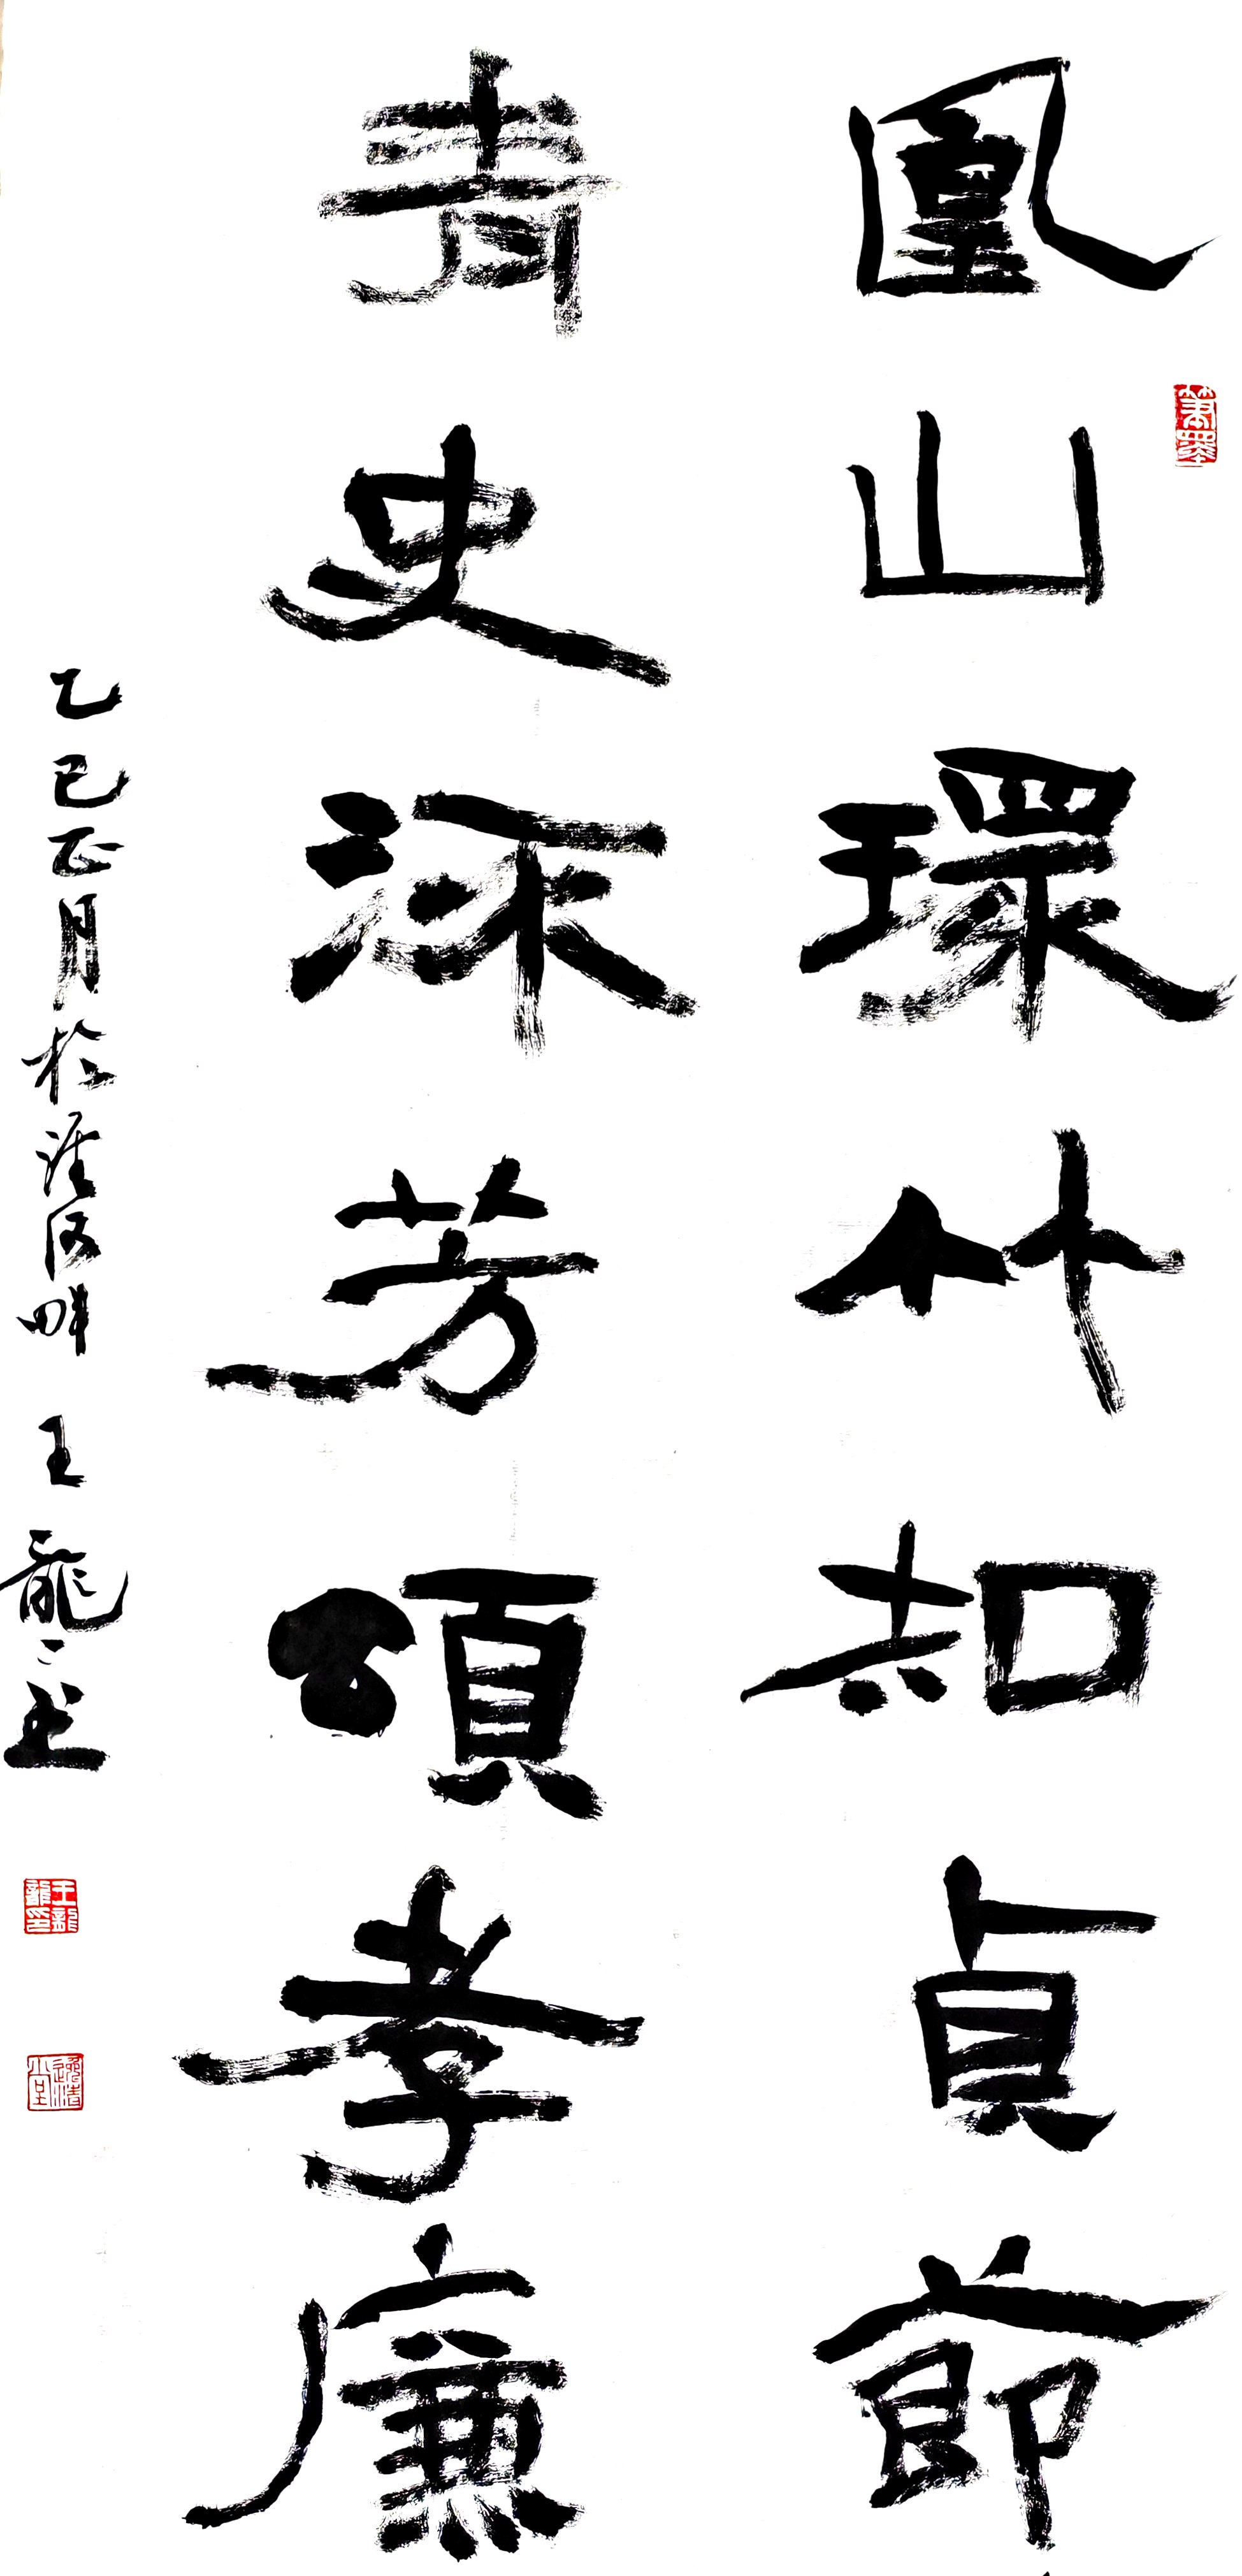 凰山環竹知貞節
青史流芳頌孝廉
乙巳正月於淮河畔 王龍〻書
王龍龍印